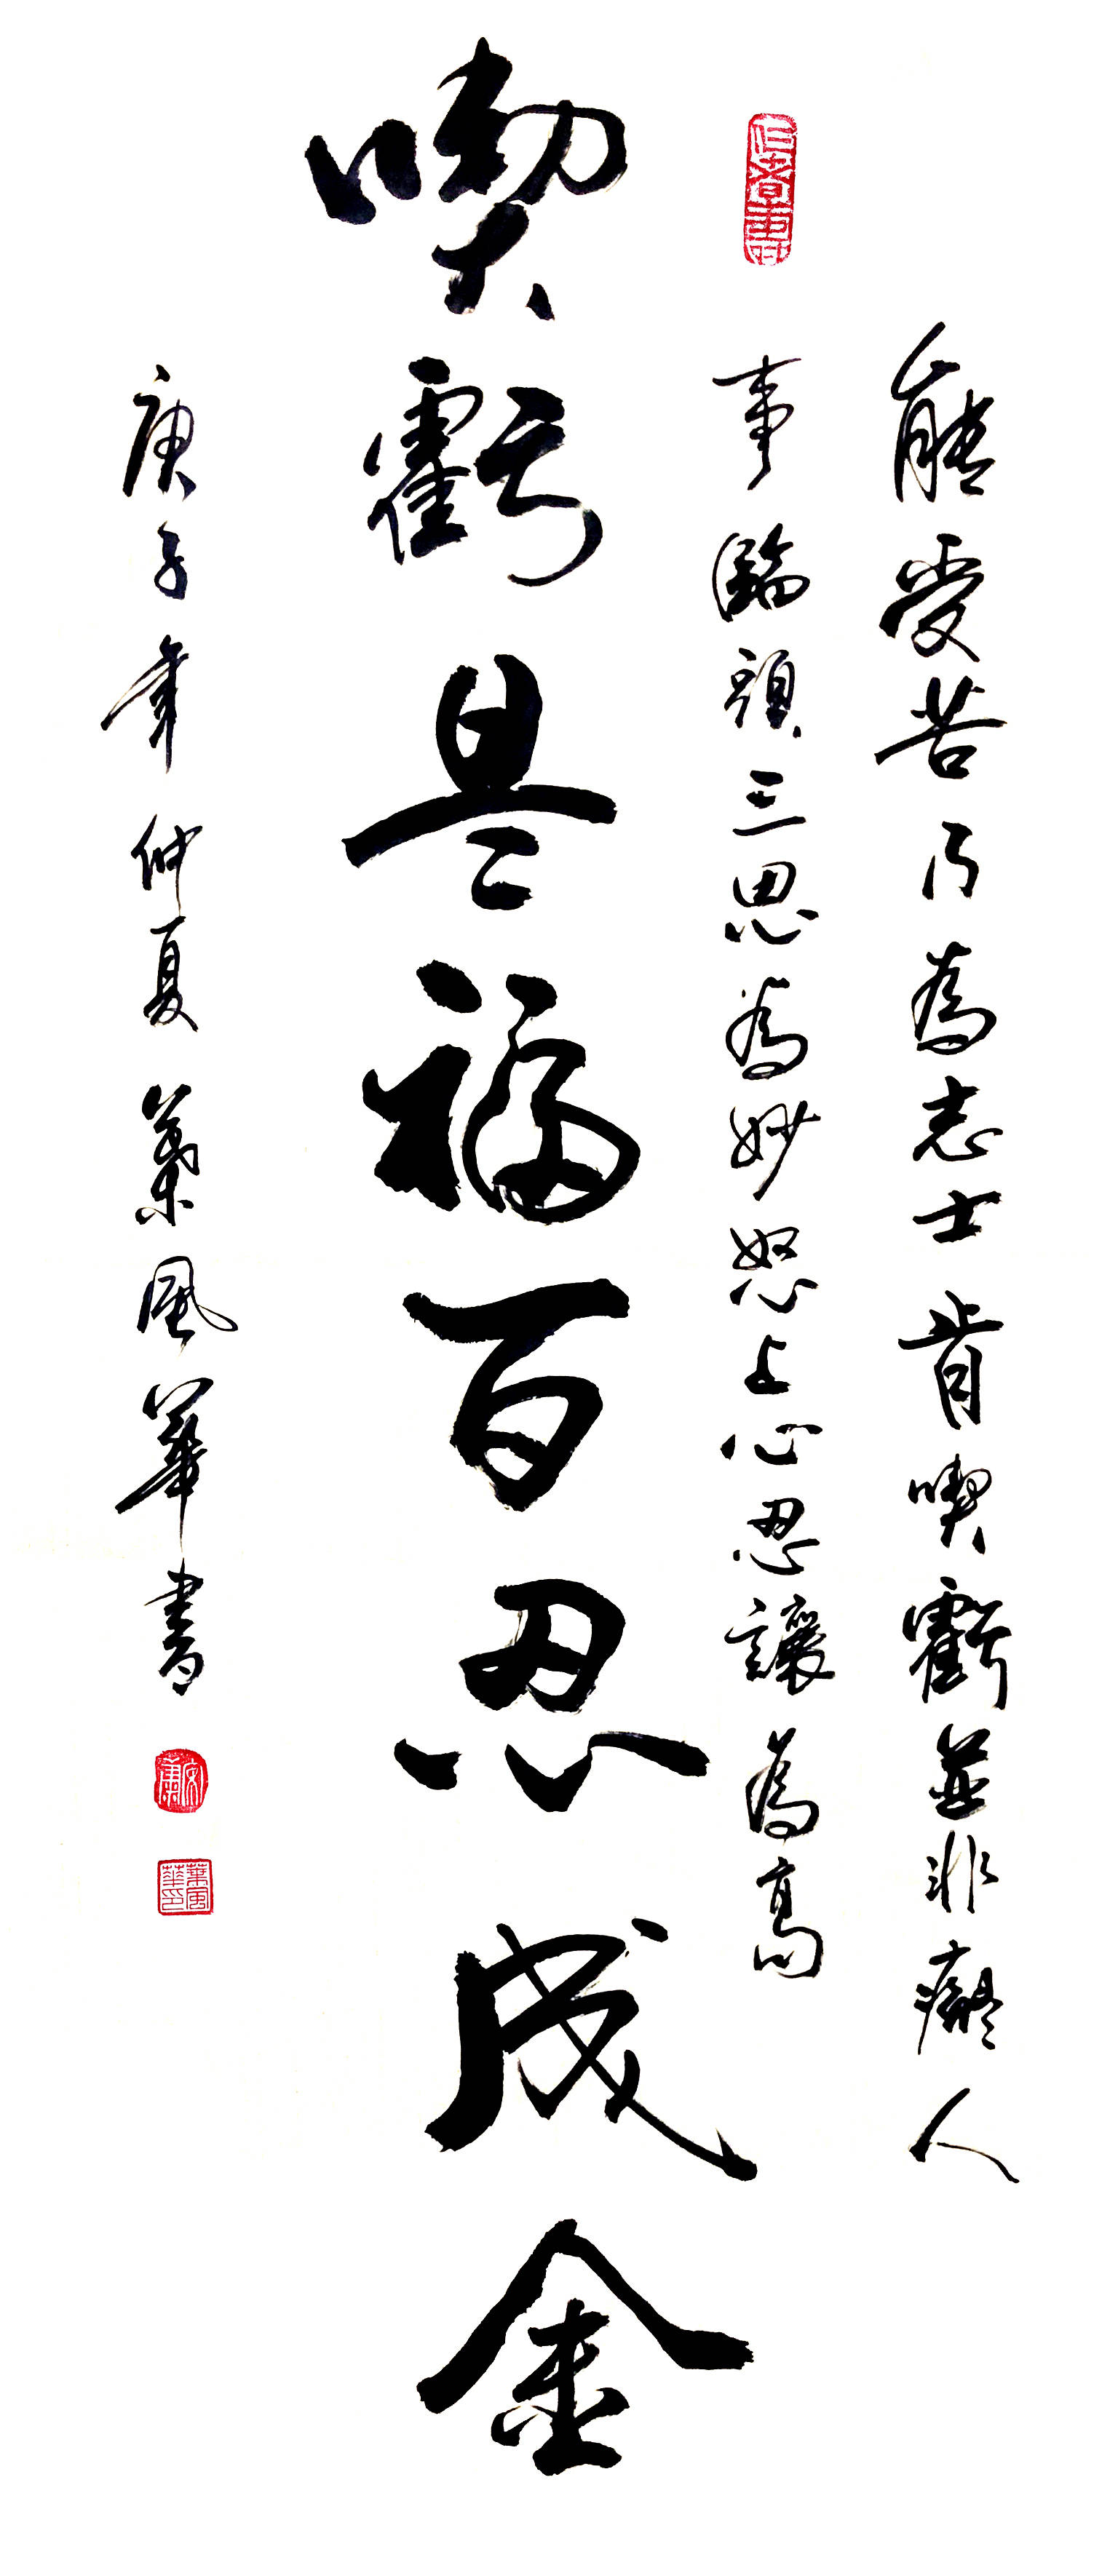 能受苦乃為志士肯喫虧並非癡人
事臨頭三思為妙怒上心忍讓為高
喫虧是福百忍成金
庚子年仲夏葉風華書
安康
葉風華印